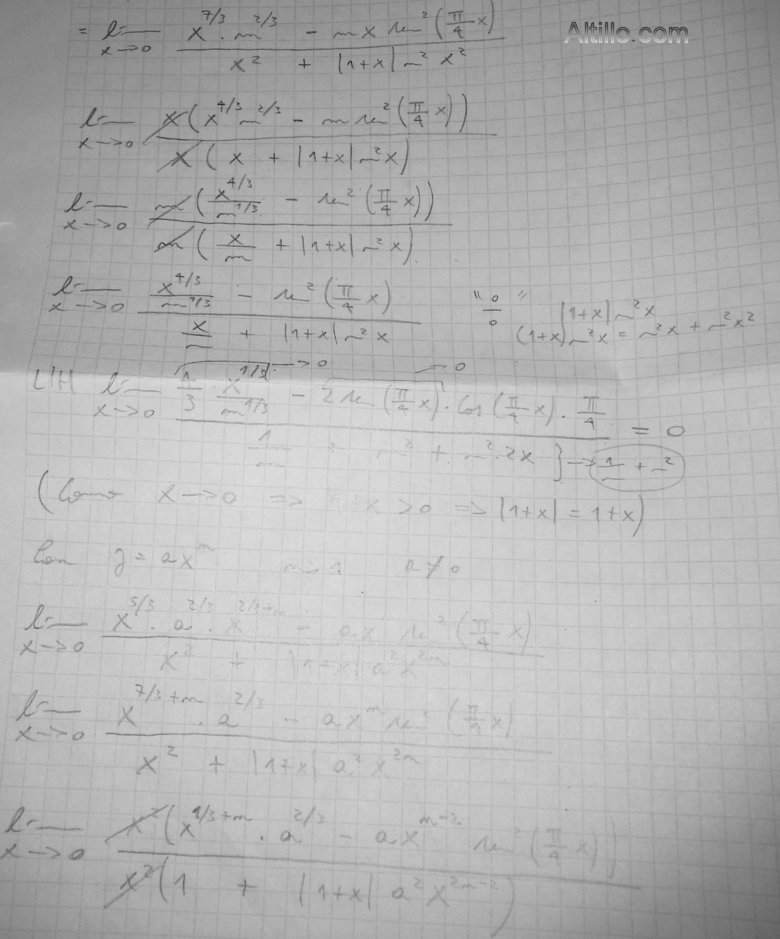 Altillo.com
= lim x→0 (x^{7/3} · m^{2/3} - mx sen²(π/4 x)) / (x² + |1+x| m² x²)
lim x→0 x(x^{4/3} m^{2/3} - m sen²(π/4 x)) / x(x + |1+x| m² x)
lim x→0 m(x^{4/3}/m^{1/3} - sen²(π/4 x)) / m(x/m + |1+x| m² x)
lim x→0 (x^{4/3}/m^{1/3} - sen²(π/4 x)) / (x/m + |1+x| m² x) "0/0" |1+x| m² x
(1+x) m² x = m² x + m² x²
L'H lim x→0 (4/3 · x^{1/3}/m^{1/3} →0 - 2 sen(π/4 x) · cos(π/4 x) · π/4 →0) / (1/m + m² + m² · 2x} → 1/m + m²) = 0
(Como x→0 => 1+x > 0 => |1+x| = 1+x)
Con y = ax^m a ≠ 0
lim x→0 (x^{5/3} · a^{2/3} · x^{2/3+m} - ax sen²(π/4 x)) / (x² + |1+x| a² x^{2m})
lim x→0 (x^{7/3+m} · a^{2/3} - ax^m sen²(π/4 x)) / (x² + |1+x| a² x^{2m})
lim x→0 x²(x^{1/3+m} · a^{2/3} - ax^{m-2} sen²(π/4 x)) / x²(1 + |1+x| a² x^{2m-2})